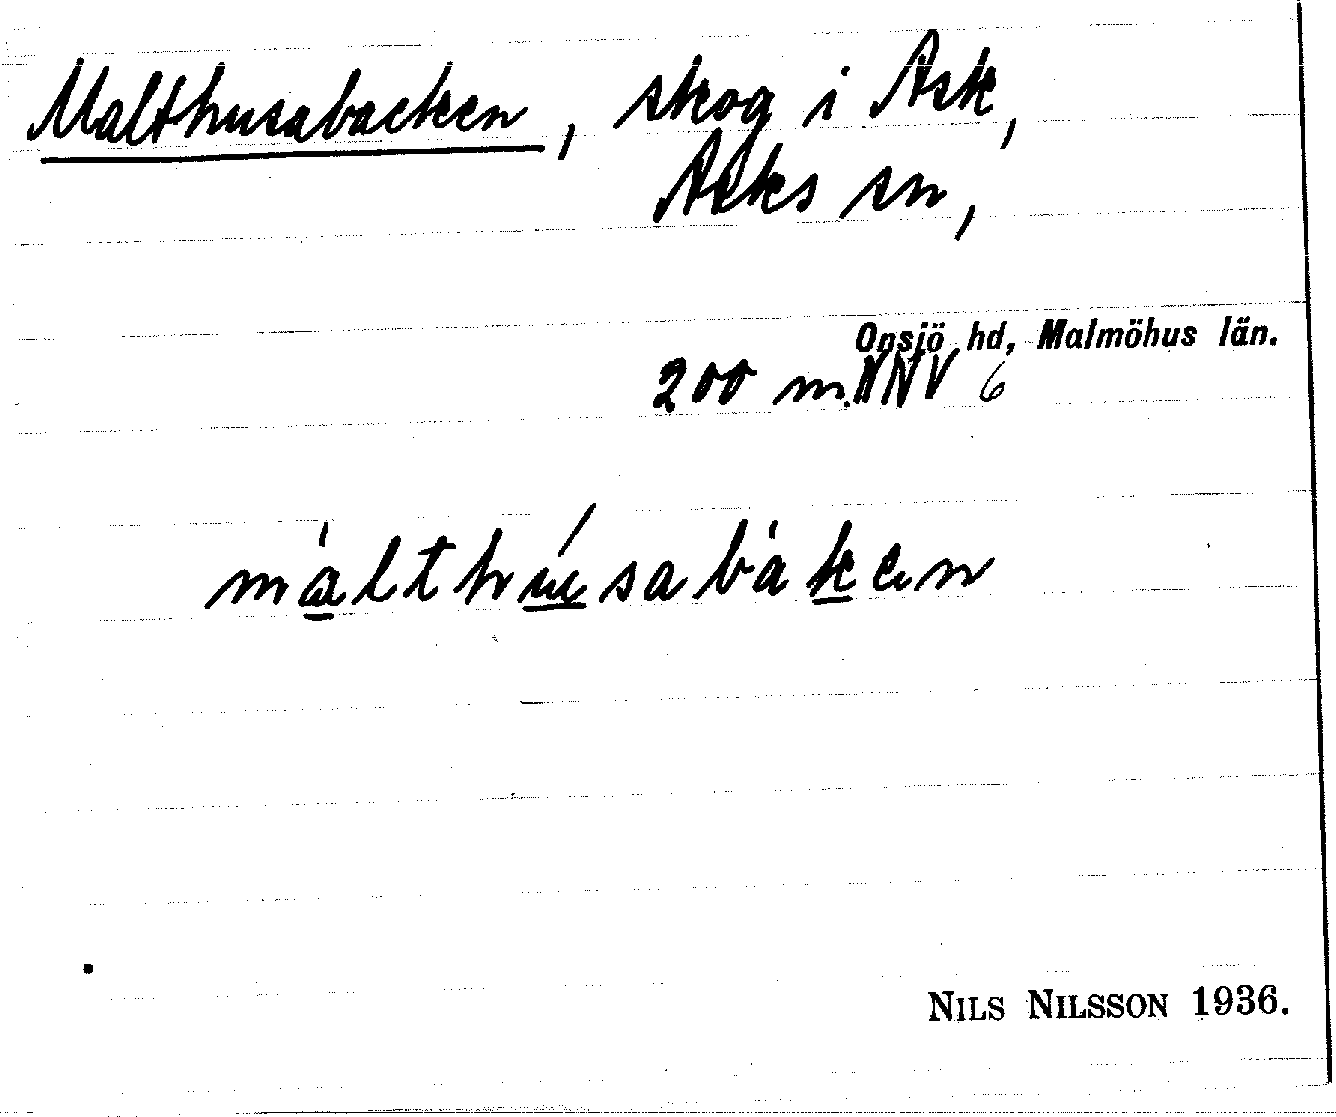 Malthusabacken, skog i Ask,
Asks sn,
Onsjö hd, Malmöhus län.
200 m. NNV 6
màlthúsabàken
NILS NILSSON 1936.